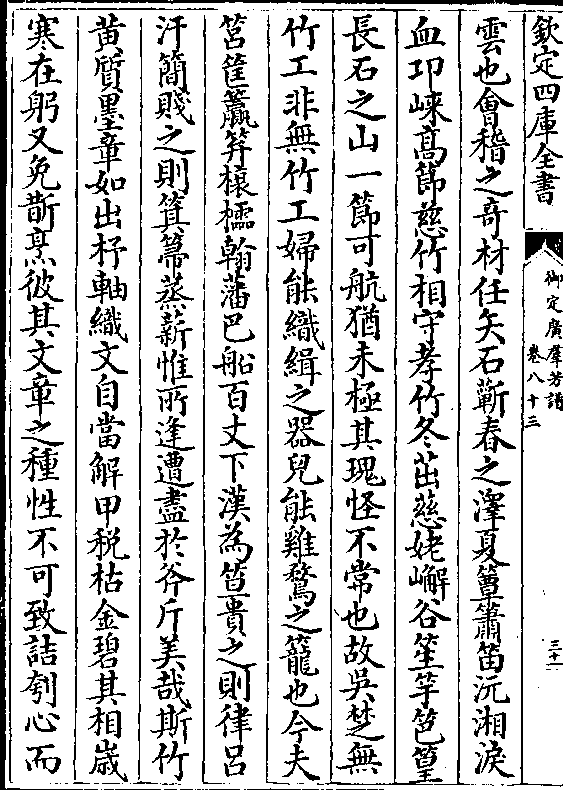 欽定四庫全書
御定廣羣芳譜
卷八十三
三十一
雲也會稽之竒材任矢石蘄春之澤夏簟簫笛沅湘淚
血卭崍髙節慈竹相守孝竹冬茁慈姥嶰谷笙竽笆篁
長石之山一節可航猶未極其瑰怪不常也故吳楚無
竹工非無竹工婦能織緝之器兒能雞鶩之籠也今夫
筥筐籯筭榱檽翰藩巴船百丈下漢為笪貴之則律呂
汗簡賤之則箕箒蒸薪惟所逢遭盡於斧斤美哉斯竹
黄質墨章如出杼軸織文自當解甲税枯金碧其相歳
寒在躬又免斮烹彼其文章之種性不可致詰刳心而